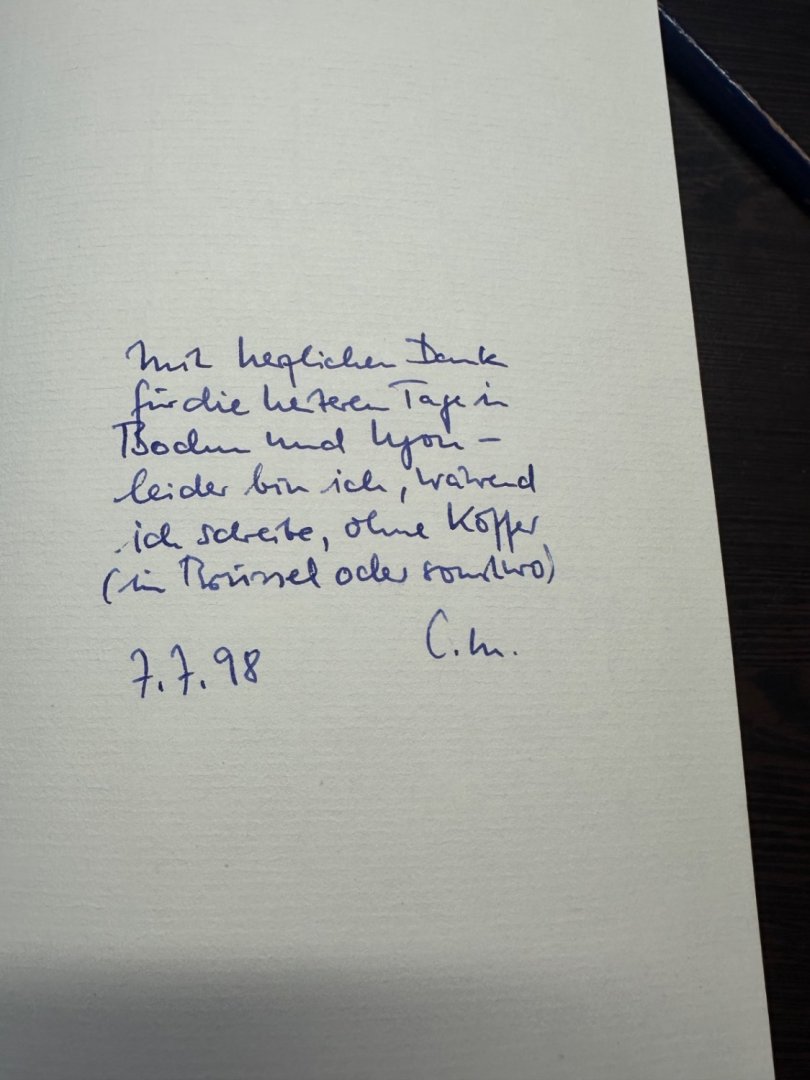 Mit herzlichem Dank
für die heiteren Tage in
Bochum und Lyon –
leider bin ich, während
ich schreibe, ohne Koffer
(in Brüssel oder sonstwo)
C.M.
7.7.98